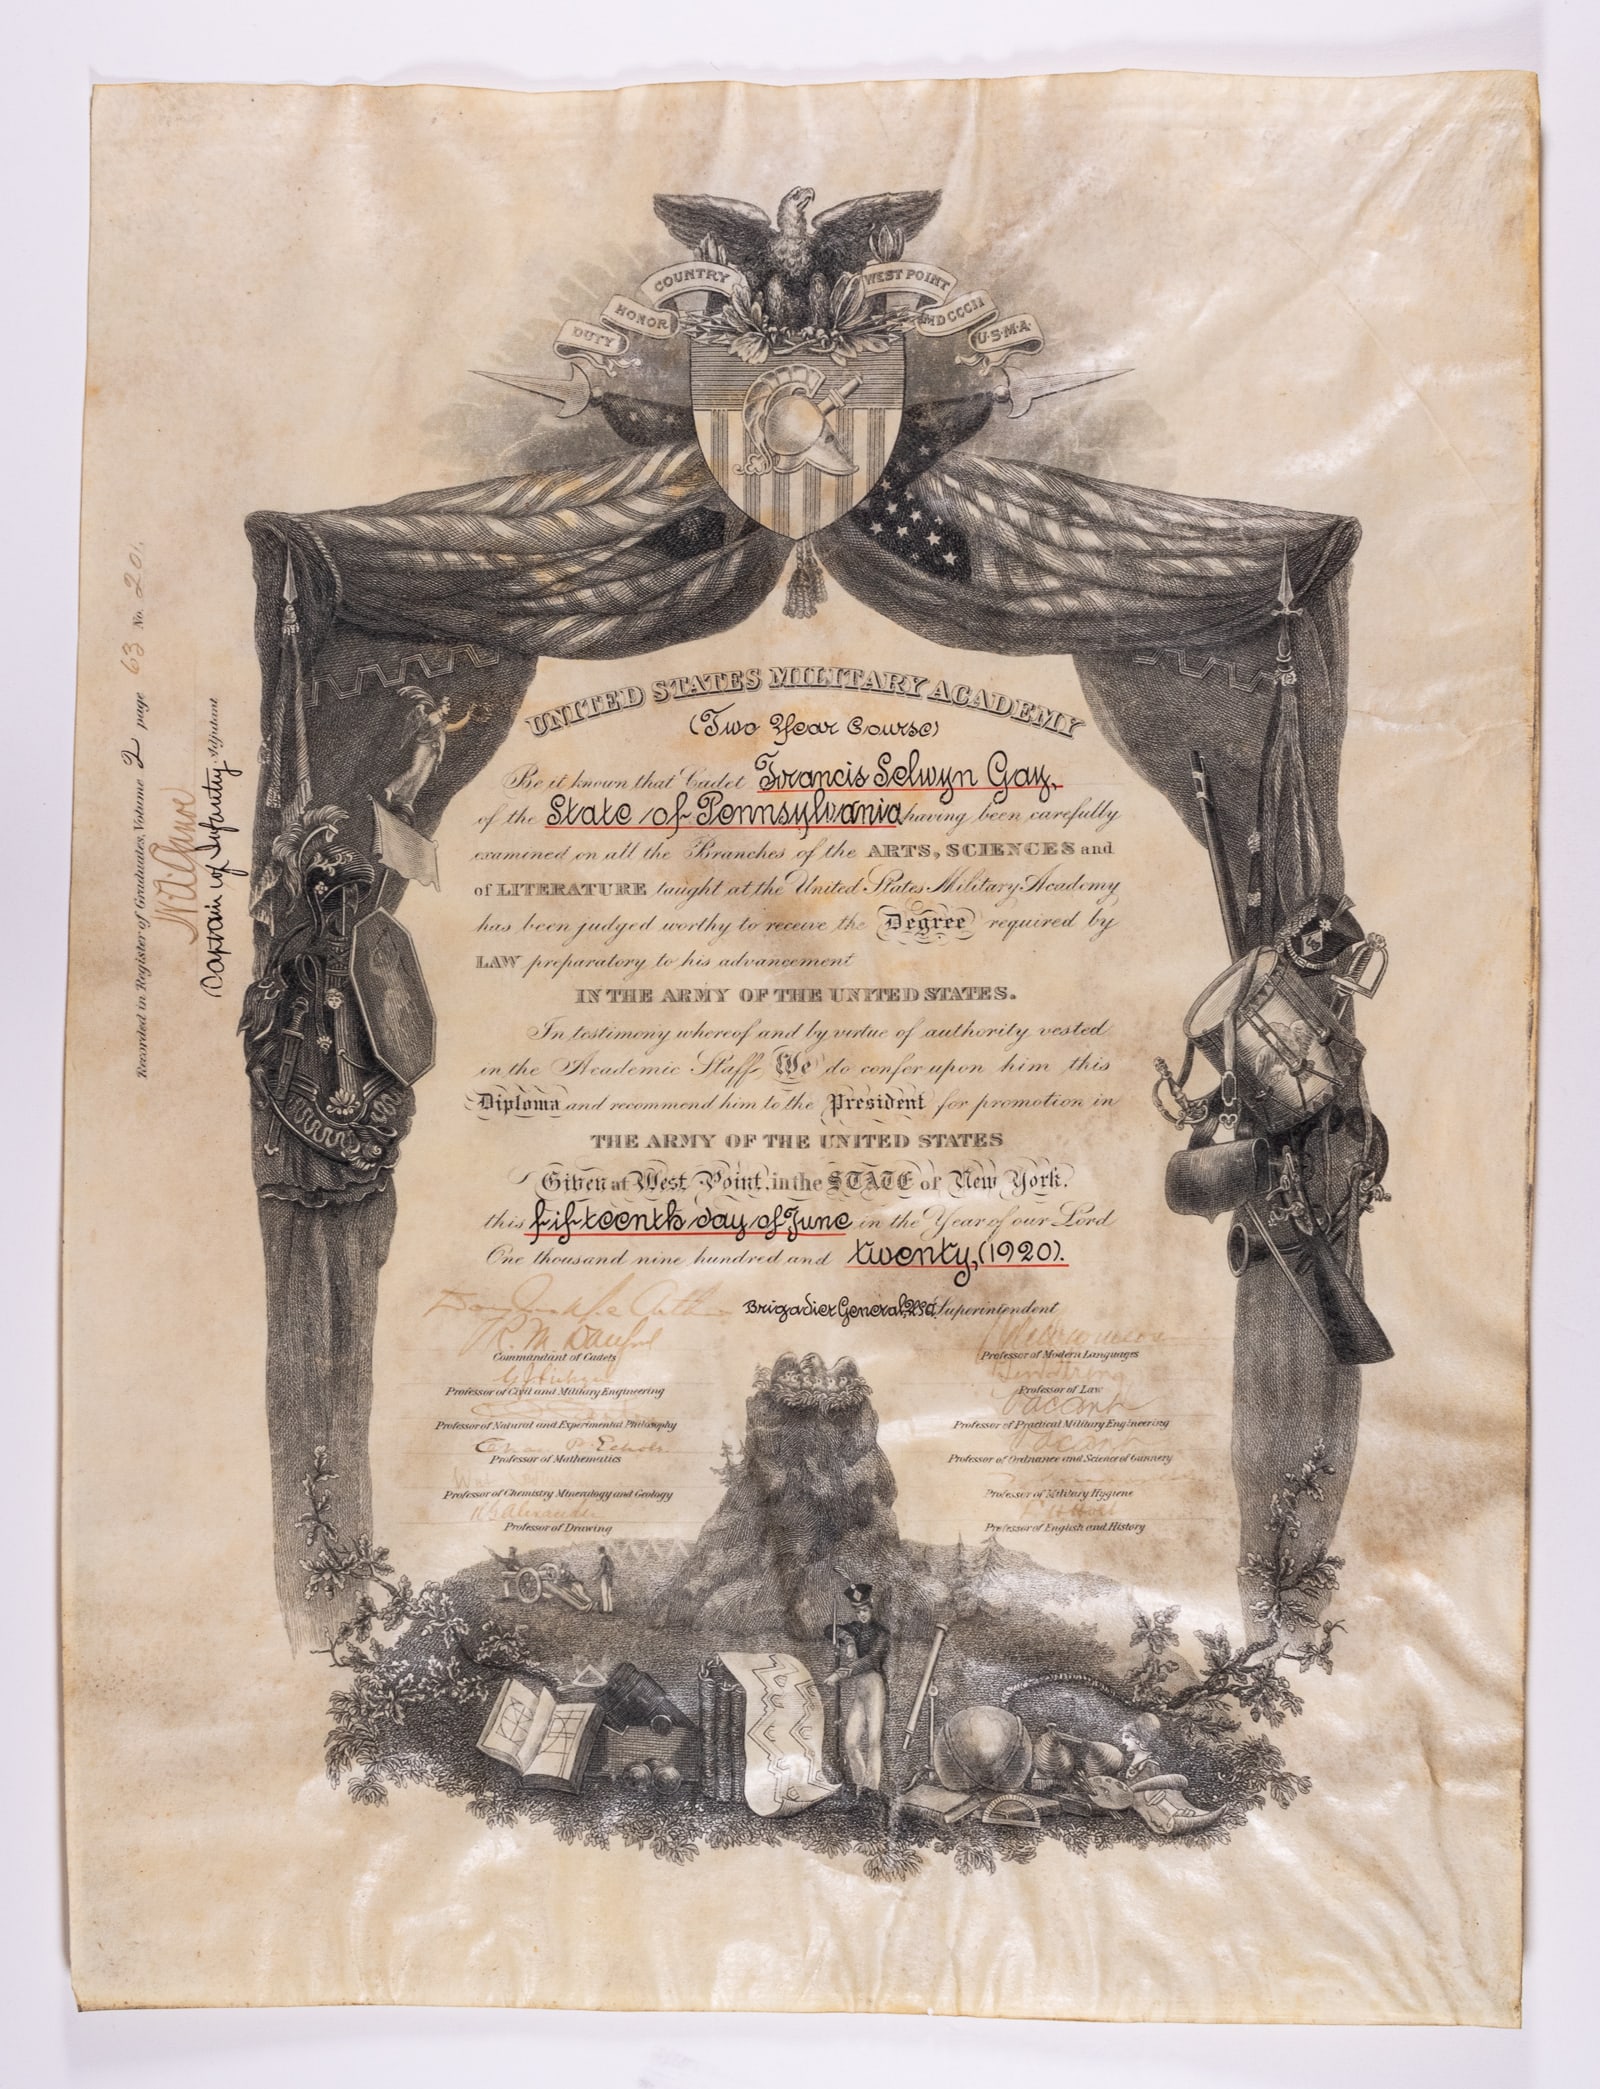 DUTY HONOR COUNTRY WEST POINT MDCCCII U·S·M·A·
UNITED STATES MILITARY ACADEMY
(Two Year Course)
Be it known that Cadet Francis Selwyn Gay,
of the State of Pennsylvania having been carefully
examined on all the Branches of the ARTS, SCIENCES and
of LITERATURE taught at the United States Military Academy,
has been judged worthy to receive the Degree required by
LAW preparatory to his advancement
IN THE ARMY OF THE UNITED STATES.
In testimony whereof and by virtue of authority vested
in the Academic Staff, We do confer upon him this
Diploma and recommend him to the President for promotion in
THE ARMY OF THE UNITED STATES
Given at West Point, in the STATE of New York.
this fifteenth day of June in the Year of our Lord
One thousand nine hundred and twenty, (1920).
Brigadier General, Superintendent
R. M. Danford
Commandant of Cadets
Professor of Civil and Military Engineering
Professor of Natural and Experimental Philosophy
Chas. P. Echols
Professor of Mathematics
Professor of Chemistry Mineralogy and Geology
R G Alexander
Professor of Drawing
Professor of Modern Languages
Professor of Law
Vacant
Professor of Practical Military Engineering
Vacant
Professor of Ordnance and Science of Gunnery
Professor of Military Hygiene
Holt
Professor of English and History
Recorded in Register of Graduates, Volume 2 page 63 No. 201.
Captain of Infantry Adjutant